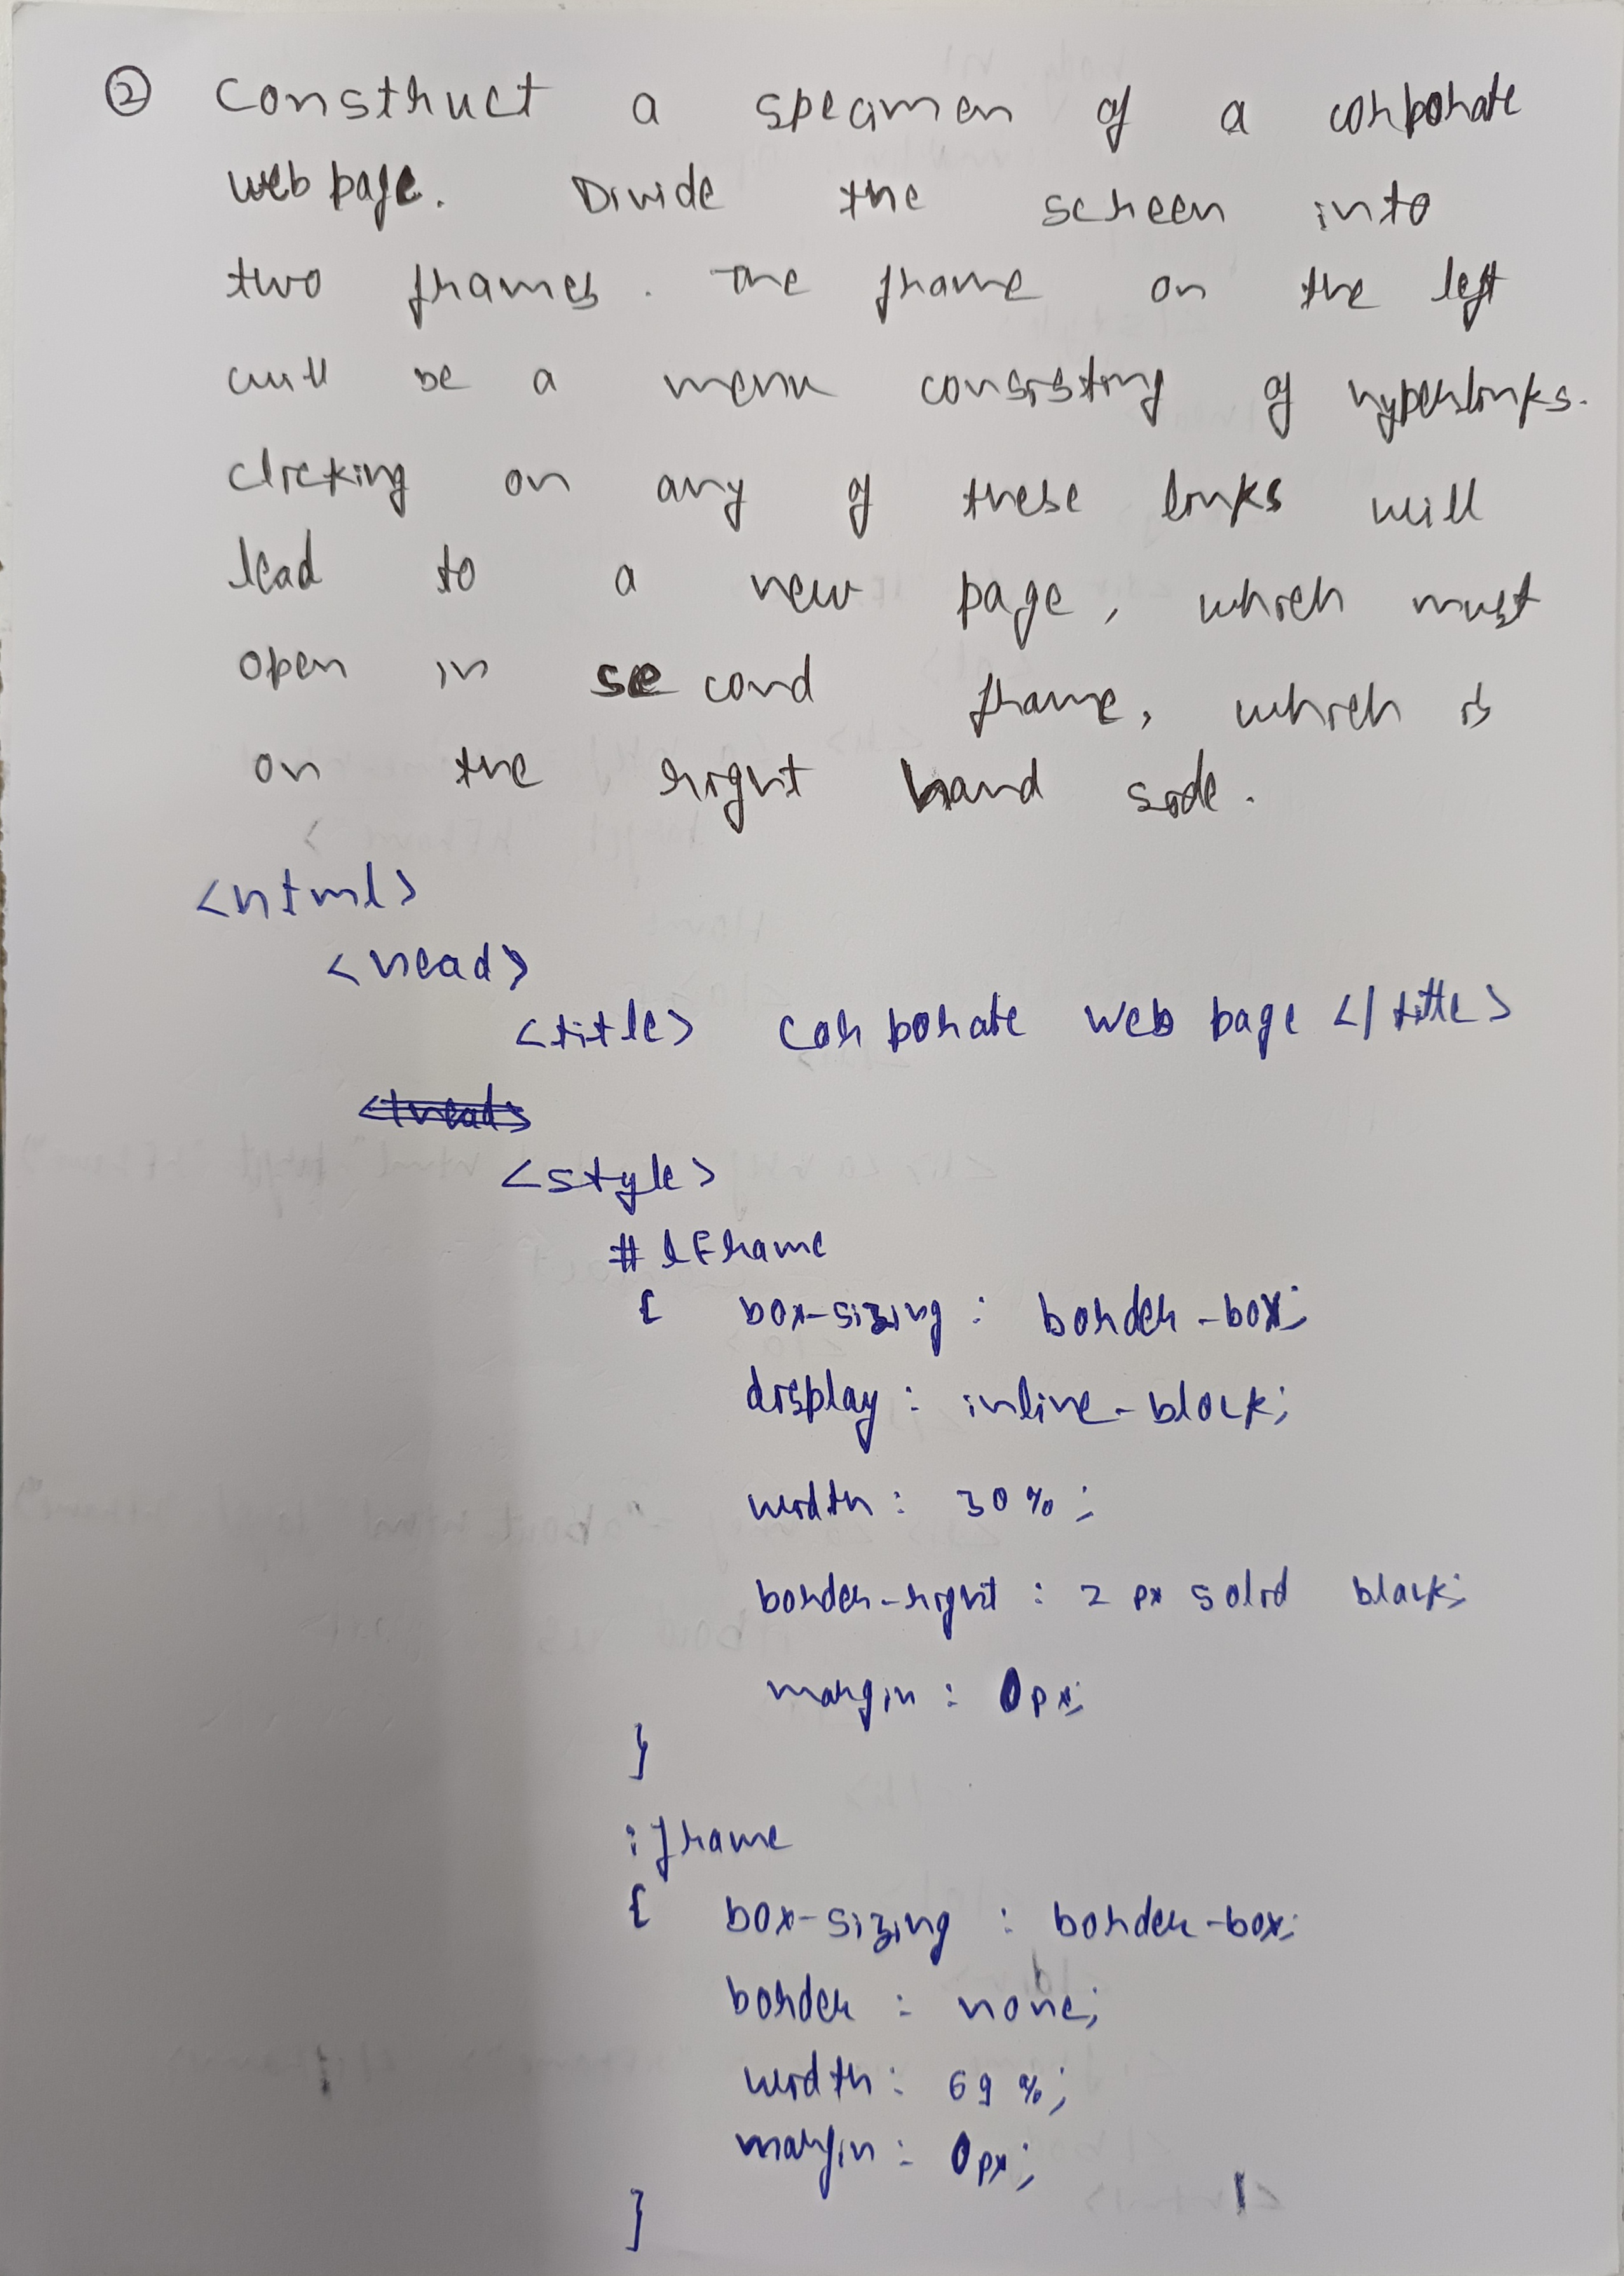 ② Construct a specimen of a corporate
web page. Divide the screen into
two frames. The frame on the left
will be a menu consisting of hyperlinks.
clicking on any of these links will
lead to a new page, which must
open in second frame, which is
on the right hand side.
<html>
<head>
<title> corporate web page </title>
<head>
<style>
# lFrame
{ box-sizing : border-box;
display : inline-block;
width : 30%;
border-right : 2px solid black;
margin : 0px;
}
iframe
{ box-sizing : border-box;
border : none;
width : 69%;
margin : 0px;
}